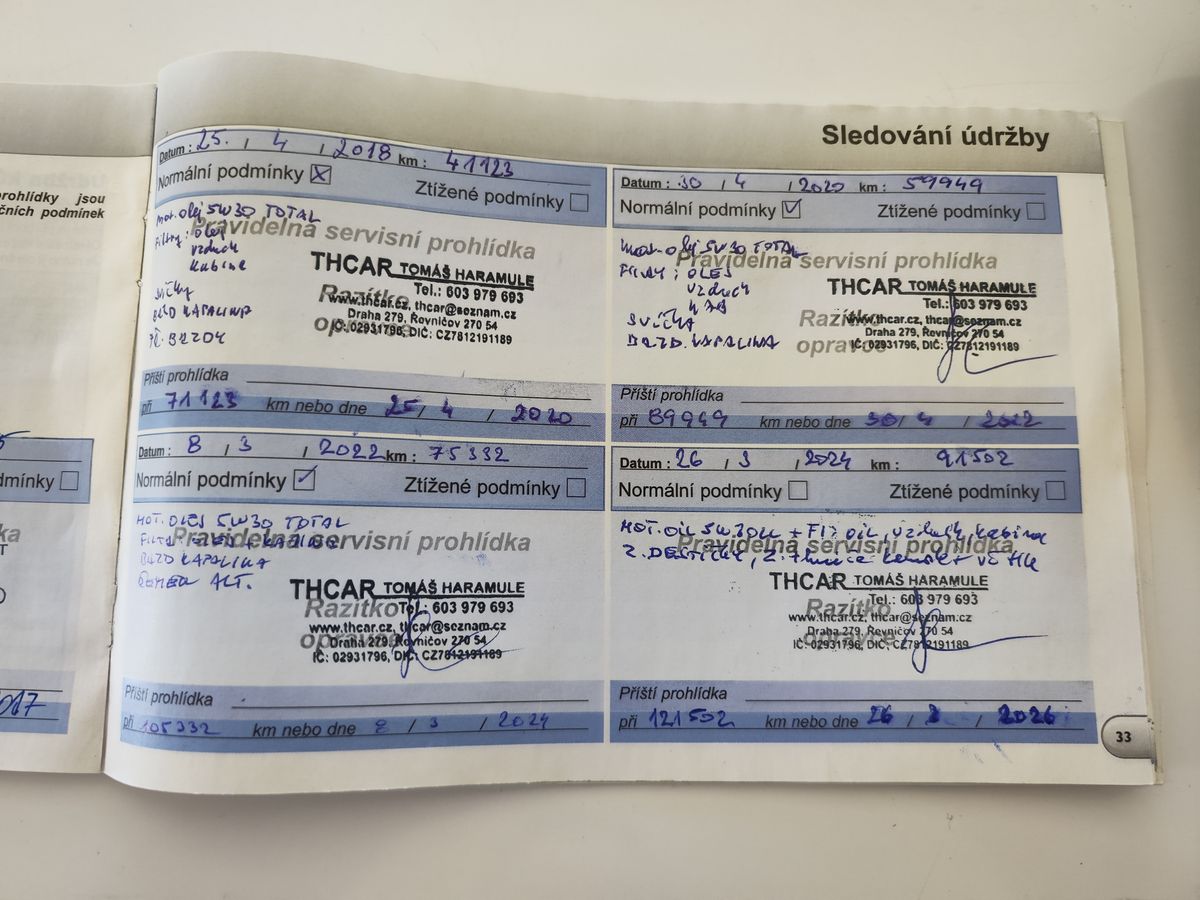 prohlídky jsou
čních podmínek
dmínky
Sledování údržby
Datum : 25. / 4 / 2018 km : 41123
Normální podmínky X Ztížené podmínky
Mot. olej 5W30 TOTAL
Pravidelná servisní prohlídka
Filtry : olej
vzduch
kabine
THCAR TOMÁŠ HARAMULE
Tel.: 603 979 693
www.thcar.cz, thcar@seznam.cz
Draha 279, Řevničov 270 54
IČ: 02931796, DIČ: CZ7812191189
Razítko
opravce
svíčky
BRZD KAPALINA
PŘ. BRZDY
Příští prohlídka
při 71123 km nebo dne 25 / 4 / 2020
Datum : 30 / 4 / 2020 km : 59949
Normální podmínky ✓ Ztížené podmínky
Mot. olej 5W30 TOTAL
Pravidelná servisní prohlídka
OLEJ
vzduch
THCAR TOMÁŠ HARAMULE
Tel.: 603 979 693
www.thcar.cz, thcar@seznam.cz
Draha 279, Řevničov 270 54
IČ: 02931796, DIČ: CZ7812191189
Razítko
opravce
SVÍČKA
BRZD. KAPALINA
Příští prohlídka
při 89949 km nebo dne 30 / 4 / 2022
Datum : 8 / 3 / 2022 km : 75332
Normální podmínky ✓ Ztížené podmínky
MOT. OLEJ 5W30 TOTAL
Pravidelná servisní prohlídka
BRZD KAPALINA
ALT.
THCAR TOMÁŠ HARAMULE
Tel.: 603 979 693
www.thcar.cz, thcar@seznam.cz
Draha 279, Řevničov 270 54
IČ: 02931796, DIČ: CZ7812191189
Razítko
opravce
Příští prohlídka
při 105332 km nebo dne 8 / 3 / 2024
Datum : 26 / 3 / 2024 km : 91502
Normální podmínky Ztížené podmínky
MOT. OIL 5W30 + oil, vzduch, kabina
Pravidelná servisní prohlídka
Z. DESTIČKY,
THCAR TOMÁŠ HARAMULE
Tel.: 603 979 693
www.thcar.cz, thcar@seznam.cz
Draha 279, Řevničov 270 54
IČ: 02931796, DIČ: CZ7812191189
Razítko
opravce
Příští prohlídka
při 121502 km nebo dne 26 / 3 / 2026
33